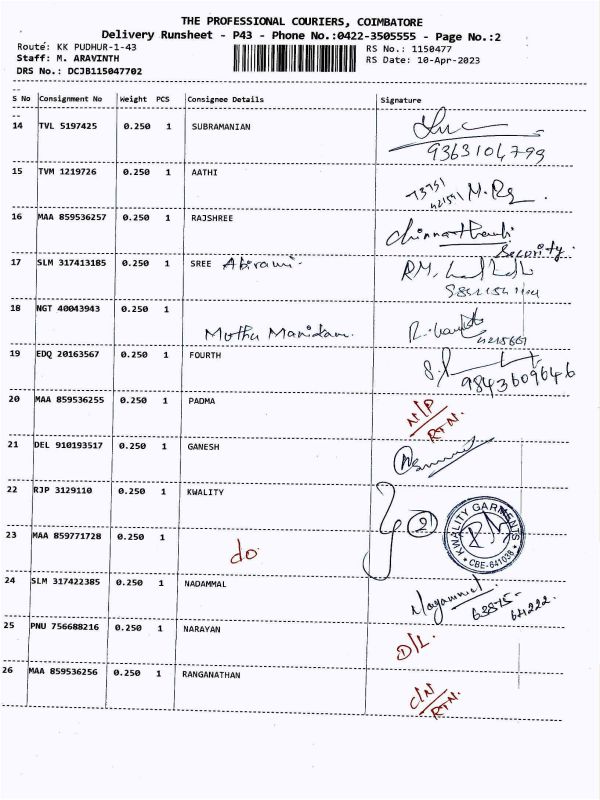 THE PROFESSIONAL COURIERS, COIMBATORE
Delivery Runsheet - P43 - Phone No.:0422-3505555 - Page No.:2
Route: KK PUDHUR-1-43 RS No.: 1150477
Staff: M. ARAVINTH RS Date: 10-Apr-2023
DRS No.: DCJB115047702
S No Consignment No Weight PCS Consignee Details Signature
14 TVL 5197425 0.250 1 SUBRAMANIAN
9363104799
15 TVM 1219726 0.250 1 AATHI
16 MAA 859536257 0.250 1 RAJSHREE
Security.
17 SLM 317413185 0.250 1 SREE Abirami.
18 NGT 40043943 0.250 1
Muthu Manidam
19 EDQ 20163567 0.250 1 FOURTH
9843609646
20 MAA 859536255 0.250 1 PADMA N/P
RTN.
21 DEL 910193517 0.250 1 GANESH
22 RJP 3129110 0.250 1 KWALITY
2 KWALITY GARMENTS
CBE-641038
23 MAA 859771728 0.250 1 do
24 SLM 317422385 0.250 1 NADAMMAL
63815-
64222.
25 PNU 756688216 0.250 1 NARAYAN D/L.
26 MAA 859536256 0.250 1 RANGANATHAN C/N
RTN.